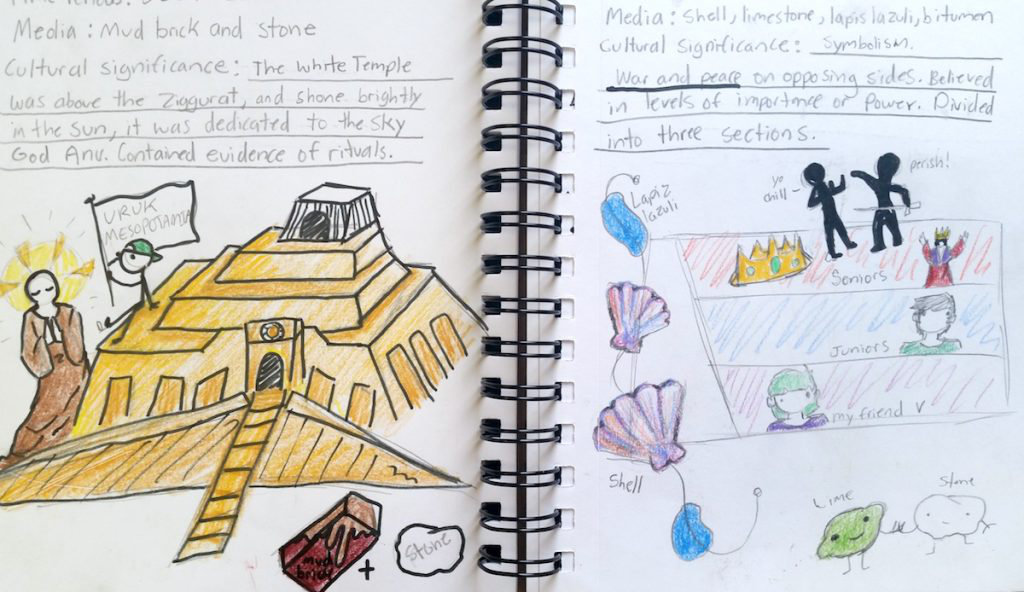 Media: Mud brick and stone
Cultural significance: The white Temple
was above the Ziggurat, and shone brightly
in the sun, it was dedicated to the sky
God Anu. Contained evidence of rituals.
URUK
MESOPOTAMIA
mud
brick
+
Stone
Media: Shell, limestone, lapis lazuli, bitumen
Cultural significance: Symbolism.
War and peace on opposing sides. Believed
in levels of importance or power. Divided
into three sections.
Lapiz
lazuli
yo
chill
perish!
Seniors
Juniors
my friend V
Shell
Lime
Stone